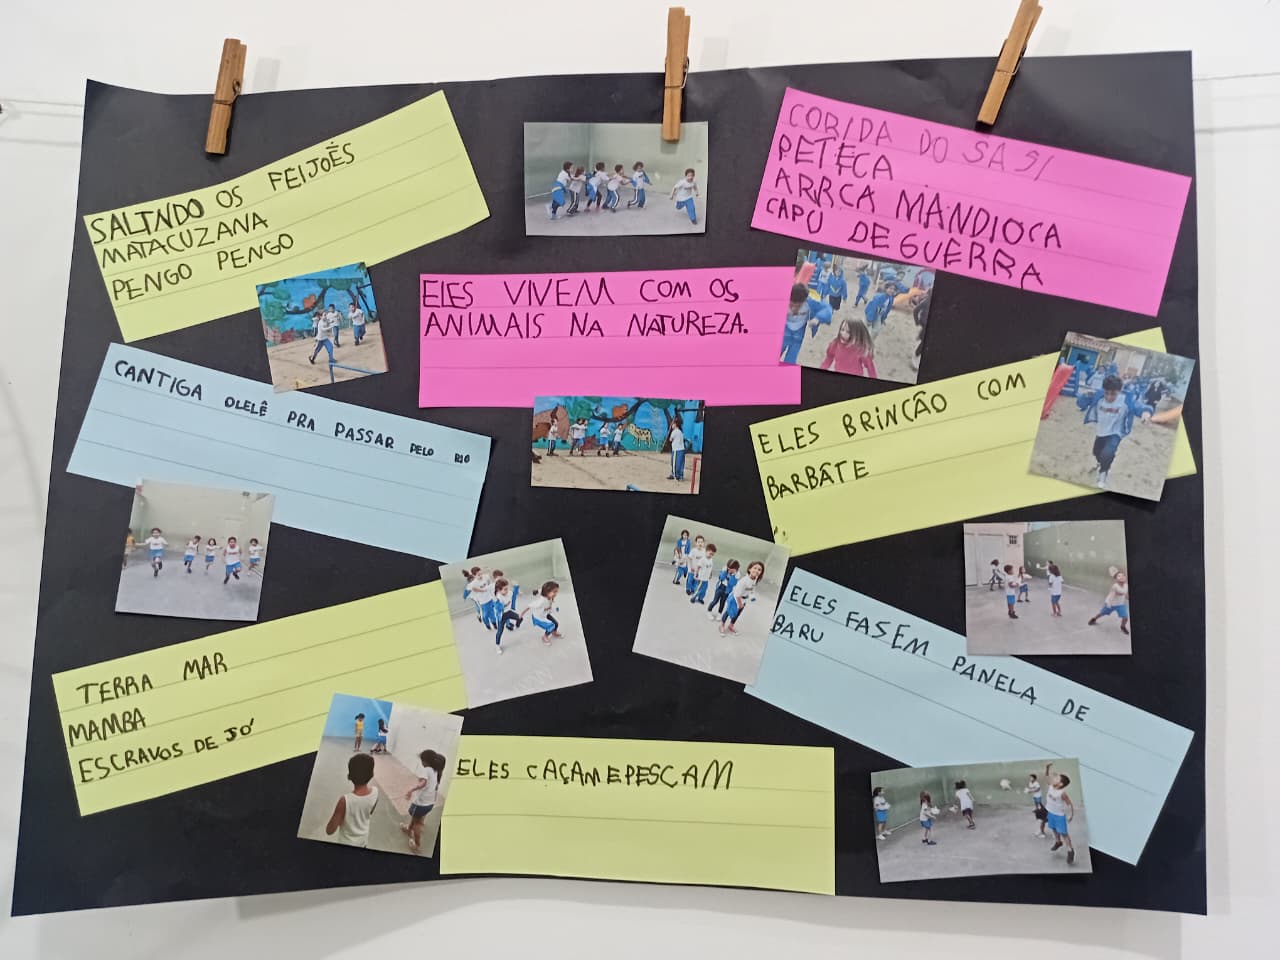 SALTNDO OS FEIJOẼS
MATACUZANA
PENGO PENGO
CORIDA DO SA SI
PETECA
ARRCA MANDIOCA
CAPU DE GUERRA
ELES VIVEM COM OS
ANIMAIS NA NATUREZA.
CANTIGA OLELÊ PRA PASSAR PELO RIO
ELES BRINCÃO COM
BARBÂTE
TERRA MAR
MAMBA
ESCRAVOS DE JÓ
ELES FASEM PANELA DE
BARU
ELES CAÇAM E PESCAM